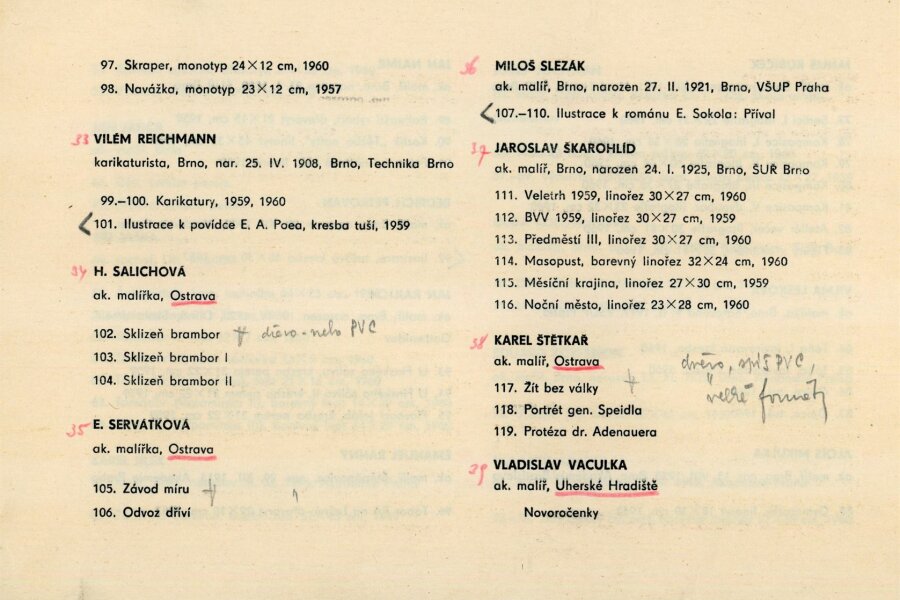 97. Skraper, monotyp 24×12 cm, 1960
98. Navážka, monotyp 23×12 cm, 1957
33 VILÉM REICHMANN
karikaturista, Brno, nar. 25. IV. 1908, Brno, Technika Brno
99.—100. Karikatury, 1959, 1960
101. Ilustrace k povídce E. A. Poea, kresba tuší, 1959
34 H. SALICHOVÁ
ak. malířka, Ostrava
102. Sklizeň brambor dřevo - nebo PVC
103. Sklizeň brambor I
104. Sklizeň brambor II
35 E. SERVÁTKOVÁ
ak. malířka, Ostrava
105. Závod míru
106. Odvoz dříví
36 MILOŠ SLEZÁK
ak. malíř, Brno, narozen 27. II. 1921, Brno, VŠUP Praha
107.—110. Ilustrace k románu E. Sokola: Příval
37 JAROSLAV ŠKAROHLÍD
ak. malíř, Brno, narozen 24. I. 1925, Brno, ŠUŘ Brno
111. Veletrh 1959, linořez 30×27 cm, 1960
112. BVV 1959, linořez 30×27 cm, 1959
113. Předměstí III, linořez 30×27 cm, 1960
114. Masopust, barevný linořez 32×24 cm, 1960
115. Měsíční krajina, linořez 27×30 cm, 1959
116. Noční město, linořez 23×28 cm, 1960
38 KAREL ŠTĚTKAŘ
ak. malíř, Ostrava
dřevo, spíš PVC,
117. Žít bez války
velké formáty
118. Portrét gen. Speidla
119. Protéza dr. Adenauera
39 VLADISLAV VACULKA
ak. malíř, Uherské Hradiště
Novoročenky